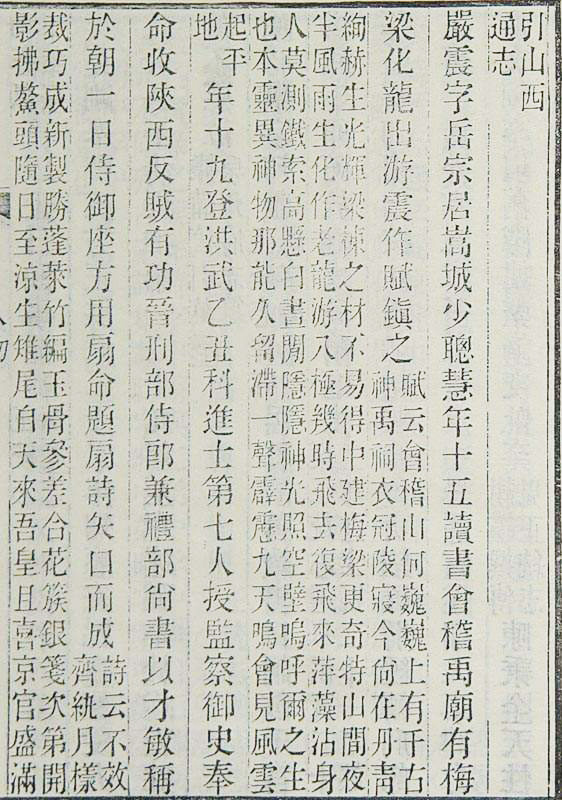 引山西
通志
嚴震字岳宗居嵩城少聰慧年十五讀書會稽禹廟有梅
梁化龍出游震作賦鎮之
賦云會稽山何巍巍上有千古
神禹祠衣冠陵寢今尚在丹青
絢赫生光輝梁棟之材不易得中建梅梁更奇特山間夜
半風雨生化作老龍游八極幾時飛去復飛來萍藻沾身
人莫測鐵索高懸白晝閒隱隱神光照空壁嗚呼爾之生
也本靈異神物那能久留滯一聲霹靂九天鳴會見風雲
起平
地
年十九登洪武乙丑科進士第七人授監察御史奉
命收陝西反賊有功晉刑部侍郎兼禮部尚書以才敏稱
於朝一日侍御座方用扇命題扇詩矢口而成
詩云不效
齊紈月樣
裁巧成新製勝蓬萊竹編玉骨參差合花簇銀箋次第開
影拂鰲頭隨日至涼生雉尾自天來吾皇且喜京官盛滿